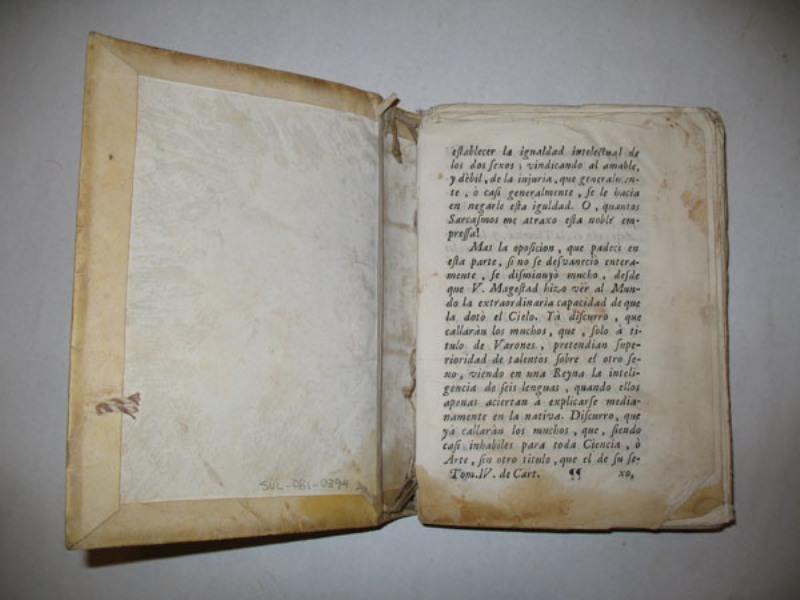 establecer la igualdad intelectual de
los dos sexos; vindicando al amable,
y dèbil, de la injuria, que generalmen-
te, ò casi generalmente, se le hacia
en negarle esta iguldad. O, quantos
Sarcasmos me atraxo esta noble em-
pressa!
Mas la oposicion, que padeci en
esta parte, si no se desvaneciò entera-
mente, se dismianyò mucho, desde
que V. Magestad hizo vèr al Mun-
do la extraordinaria capacidad de que
la dotò el Cielo. Yà discurro, que
callaràn los muchos, que, solo à ti-
tulo de Varones, pretendian supe-
rioridad de talentos sobre el otro se-
xo, viendo en una Reyna la inteli-
gencia de seis lenguas, quando ellos
apenas aciertan à explicarse media-
namente en la nativa. Discurro, que
yà callaràn los muchos, que, siendo
casi inhabiles para toda Ciencia, ò
Arte, sin otro titulo, que el de su se-
Tom.IV. de Cart. ¶¶ xo,
SUL-081-0394